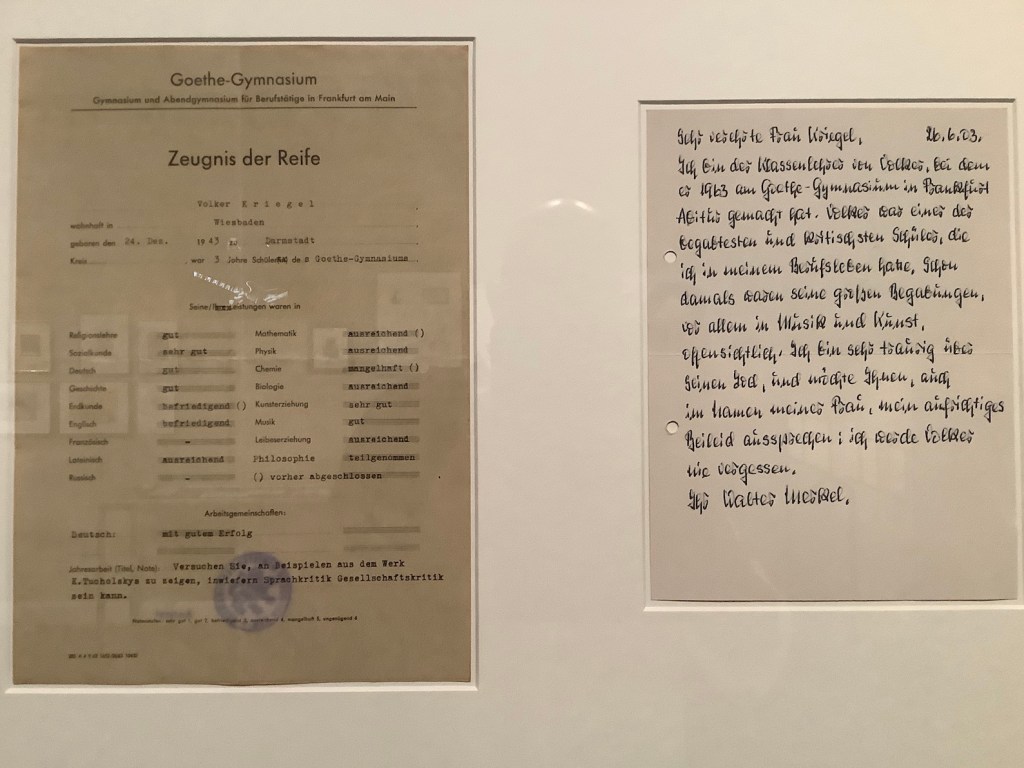 Goethe-Gymnasium
Gymnasium und Abendgymnasium für Berufstätige in Frankfurt am Main
Zeugnis der Reife
Volker Kriegel
wohnhaft in Wiesbaden
geboren den 24. Dez. 1943 zu Darmstadt
Kreis war 3 Jahre Schüler des Goethe-Gymnasiums
Seine/Ihre Leistungen waren in
Religionslehre gut Mathematik ausreichend ()
Sozialkunde sehr gut Physik ausreichend
Deutsch gut Chemie mangelhaft ()
Geschichte gut Biologie ausreichend
Erdkunde befriedigend () Kunsterziehung sehr gut
Englisch befriedigend Musik gut
Französisch - Leibeserziehung ausreichend
Lateinisch ausreichend Philosophie teilgenommen
Russisch - () vorher abgeschlossen
Arbeitsgemeinschaften:
Deutsch: mit gutem Erfolg
Jahresarbeit (Titel, Note): Versuchen Sie, an Beispielen aus dem Werk
K.Tucholskys zu zeigen, inwiefern Sprachkritik Gesellschaftskritik
sein kann.
Notenstufen: sehr gut 1, gut 2, befriedigend 3, ausreichend 4, mangelhaft 5, ungenügend 6
Sehr verehrte Frau Kriegel, 26.6.03.
Ich bin der Klassenlehrer von Volker, bei dem
er 1963 am Goethe-Gymnasium in Frankfurt
Abitur gemacht hat. Volker war einer der
begabtesten und kritischsten Schüler, die
ich in meinem Berufsleben hatte. Schon
damals waren seine großen Begabungen,
vor allem in Musik und Kunst,
offensichtlich. Ich bin sehr traurig über
seinen Tod, und möchte Ihnen, auch
im Namen meiner Frau, mein aufrichtiges
Beileid aussprechen; ich werde Volker
nie vergessen.
Ihr Walter Merkel.